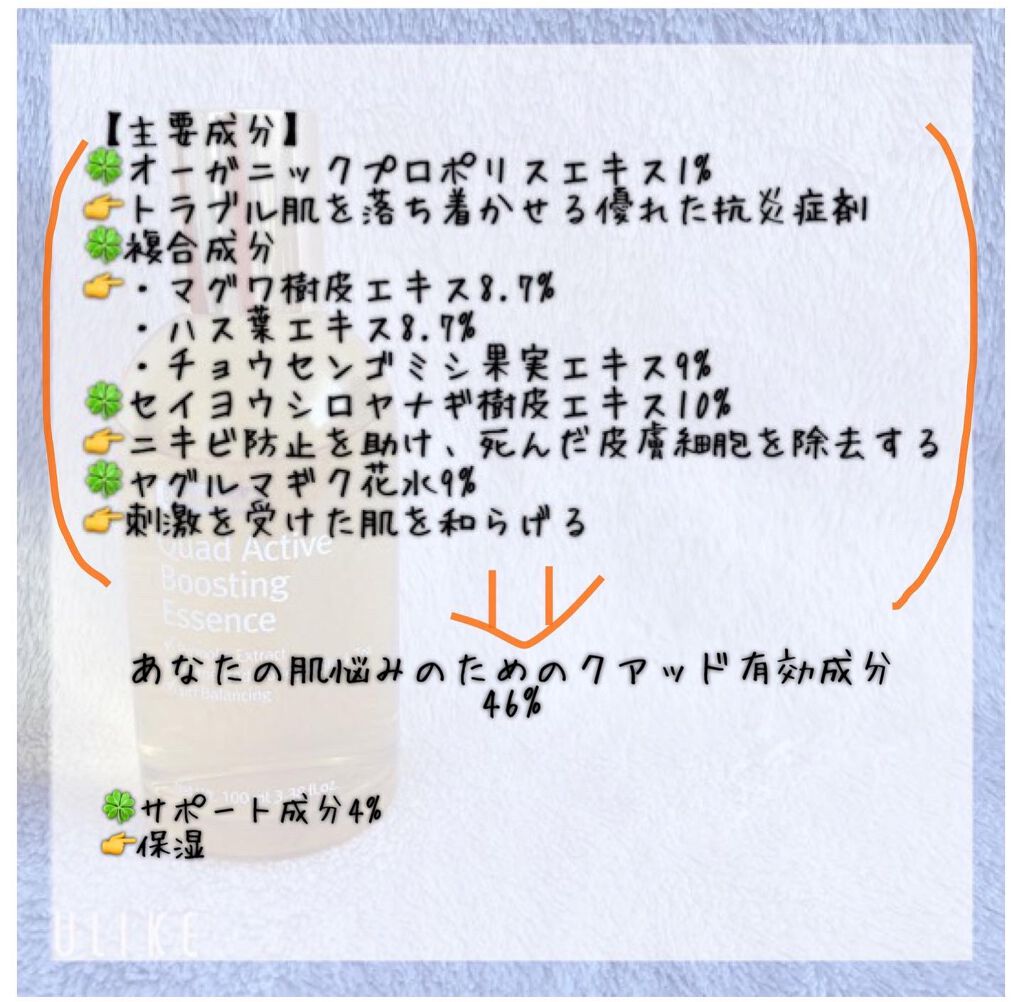 【主要成分】
🍀オーガニックプロポリスエキス1%
👉トラブル肌を落ち着かせる優れた抗炎症剤
🍀複合成分
👉・マグワ樹皮エキス8.7%
・ハス葉エキス8.7%
・チョウセンゴミシ果実エキス9%
🍀セイヨウシロヤナギ樹皮エキス10%
👉ニキビ防止を助け、死んだ皮膚細胞を除去する
🍀ヤグルマギク花水9%
👉刺激を受けた肌を和らげる
Quad Active
Boosting
Essence
あなたの肌悩みのためのクアッド有効成分
46%
Balancing
100 ml 3.38 fl.oz.
🍀サポート成分4%
👉保湿
ULIKE